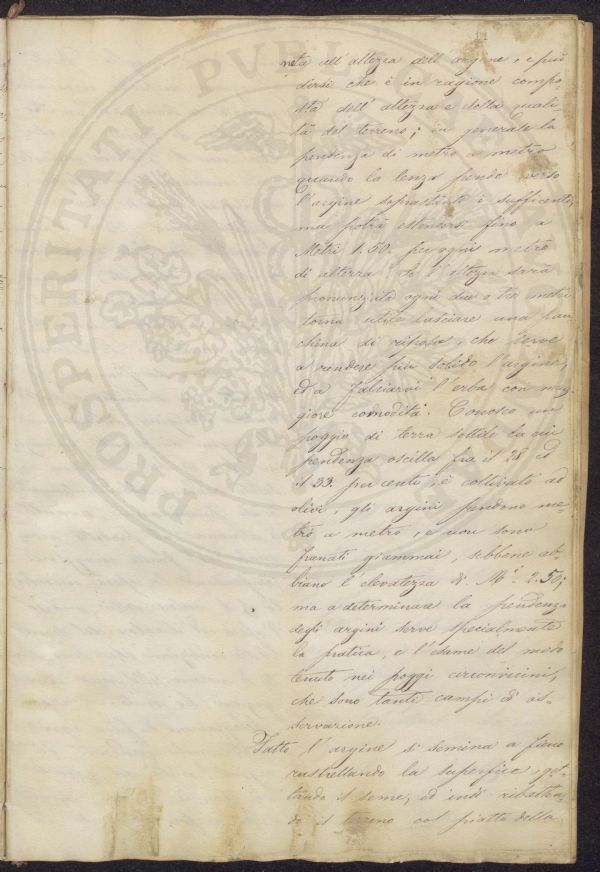 11
metà all'altezza dell'argine, e può
dirsi che è in ragione compo-
sta dell'altezza e della quali-
tà del terreno; in generale la
pendenza di metro a metro
quando la lenza pende verso
l'argine soprastante è sufficente,
ma potrà estendersi fino a
Metri 1.50. per ogni metro
di altezza: se l'altezza sarà
pronunziata ogni due o tre metri
torna utile lasciare una ban
china di riposo, che serve
a rendere più solido l'argine,
ed a falciarvi l'erba con mag
giore comodità. Conosco un
poggio di terra sottile la cui
pendenza oscilla fra il 28 ed
il 33. per cento, è coltivato ad
olivi, gli argini pendono me-
tro a metro, e non sono
franati giammai, sebbene ab-
biano l'elevatezza di Mi. 2.50;
ma a determinare la pendenza
degli argini serve specialmente
la pratica, e l'esame del modo
tenuto nei poggi circonvicini,
che sono tanti campi di os-
servazione.
Fatto l'argine si semina a fieno
rastrellando la superfice, get-
tando il seme, ed indi ribatten-
do il terreno col piatto della
PROSPERITATI PVBLICAE